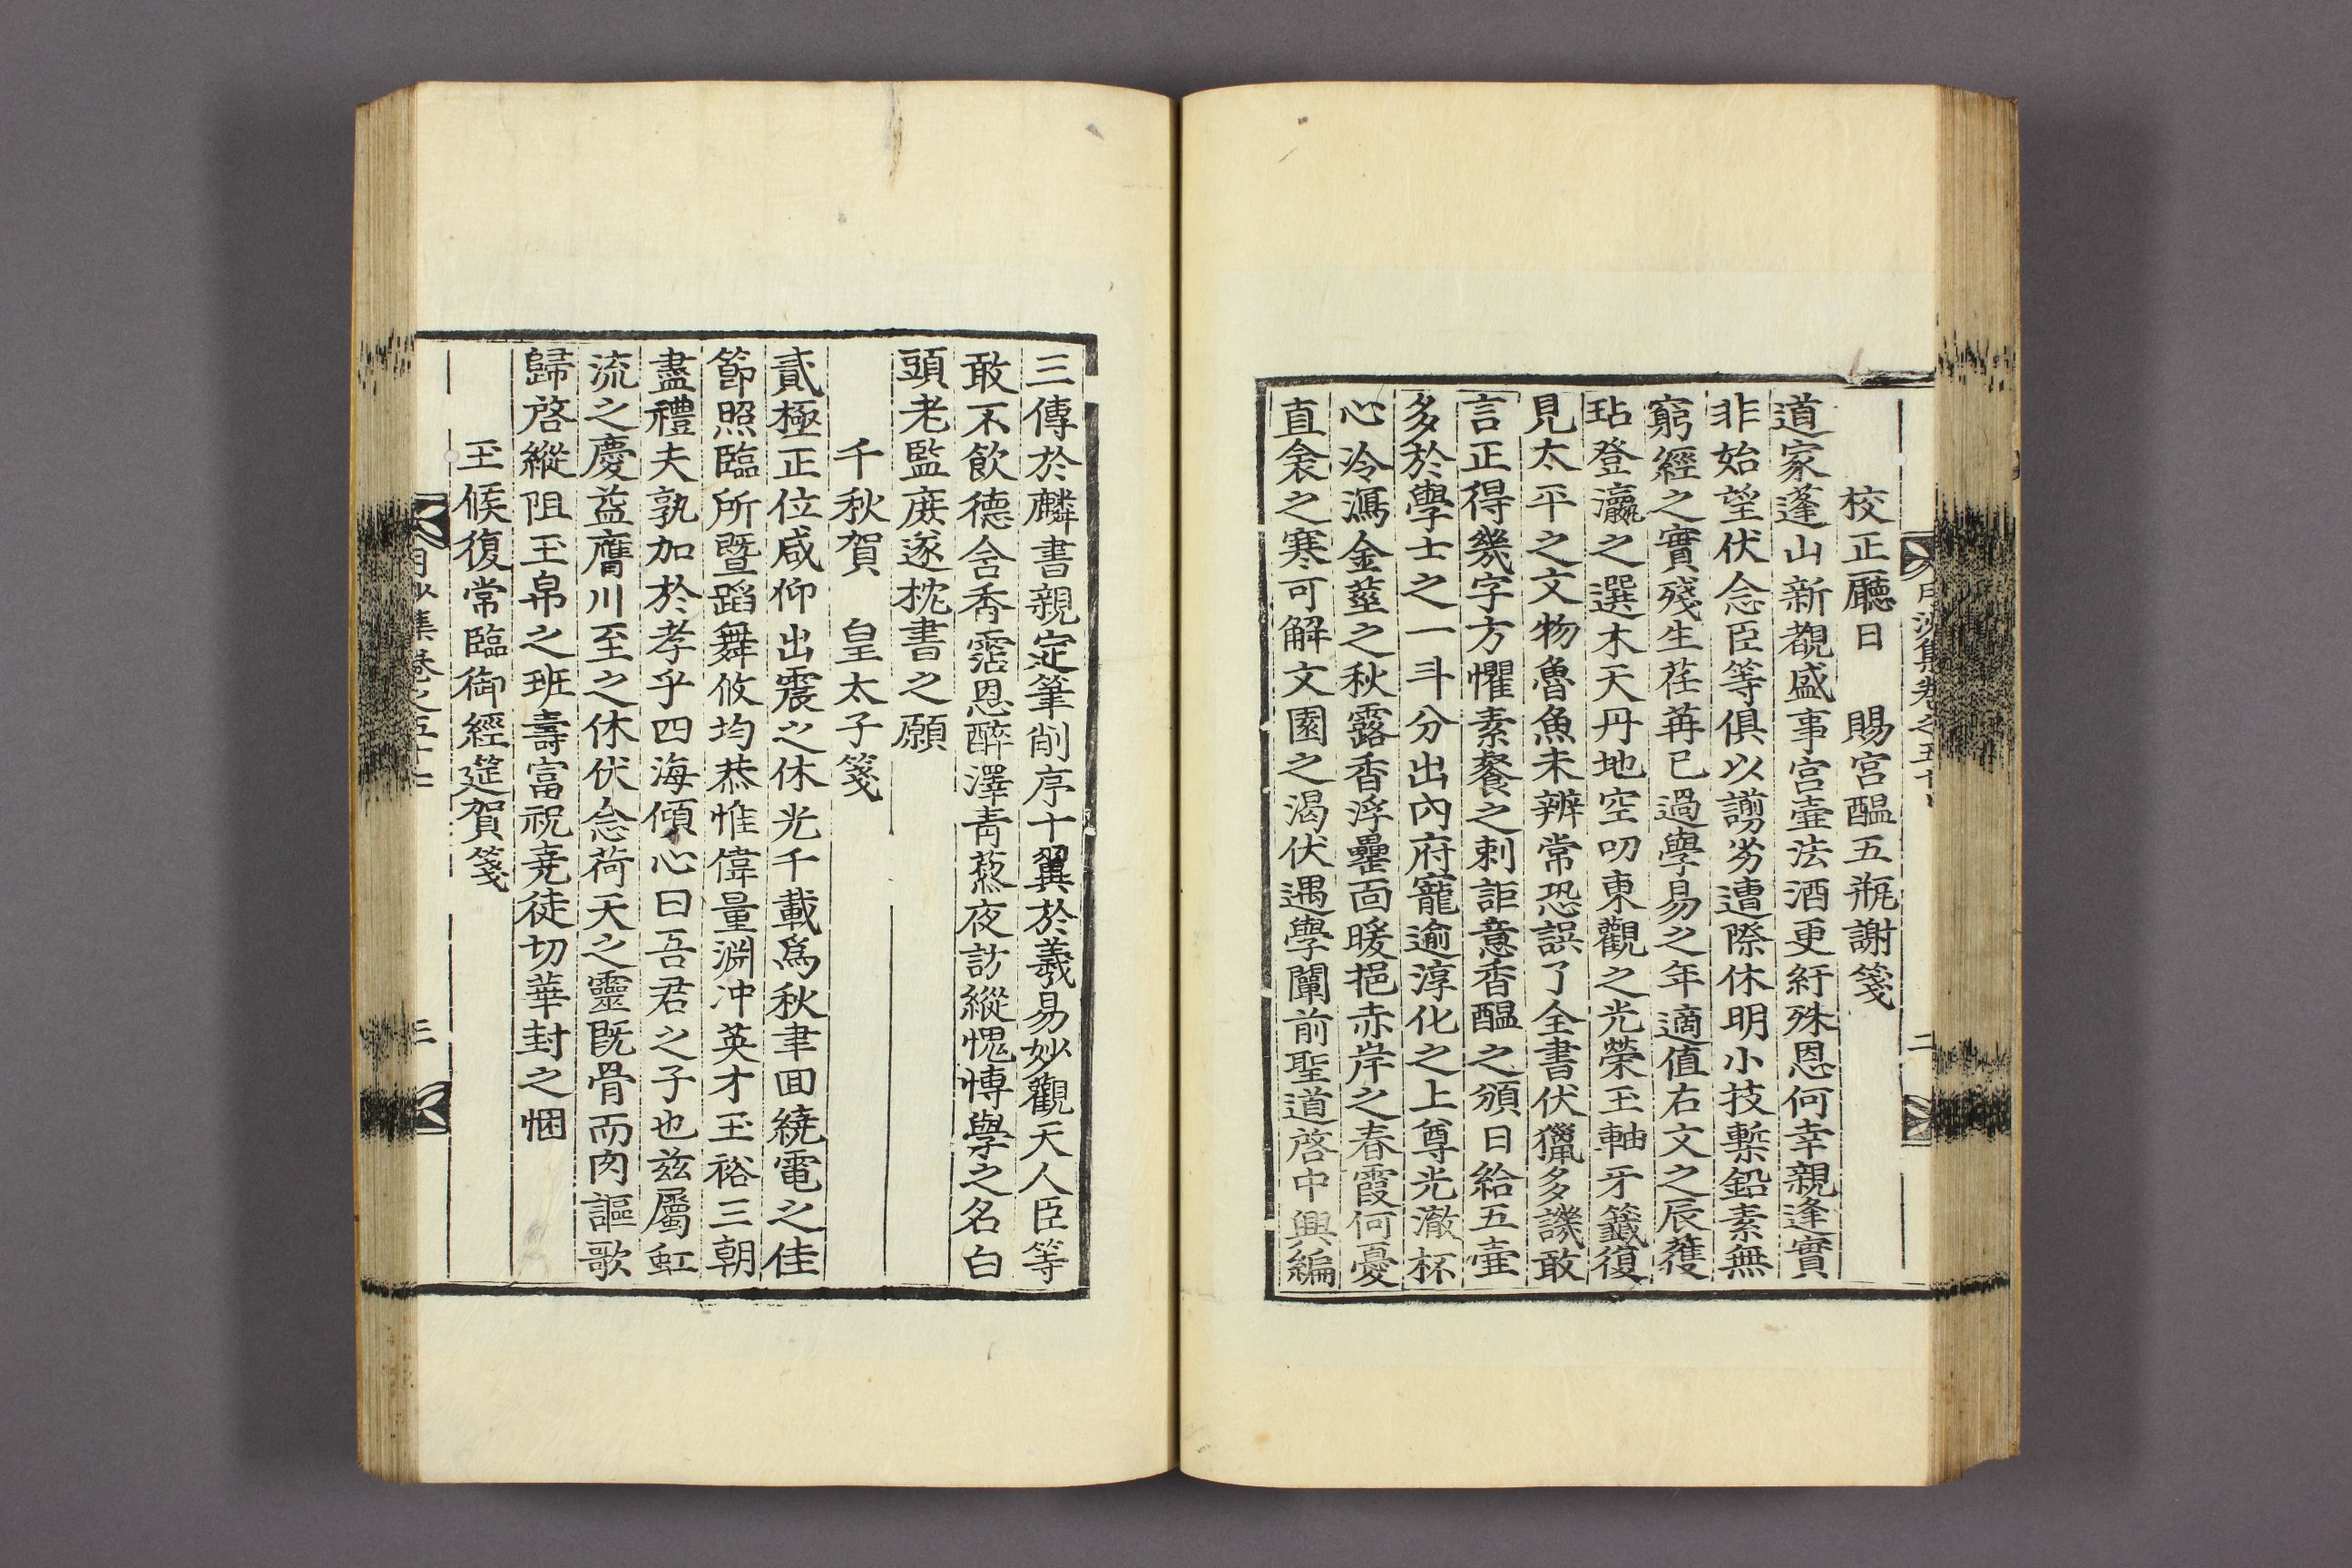 校正廳日　賜宮醞五瓶謝箋
道家蓬山新覩盛事宮壷法酒更紆殊恩何幸親逢實
非始望伏念臣等俱以謭劣遭際休明小技槧鉛素無
窮經之實殘生荏苒已過學易之年適值右文之辰蒦
玷登瀛之選木天丹地空叨東觀之光榮玉軸牙籤復
見太平之文物魯魚未辨常恐誤了全書伏獵多譏敢
言正得幾字方懼素餐之刺詎意香醞之頒日給五壷
多於學士之一斗分出內府寵逾淳化之上尊光澈杯
心冷瀉金莖之秋露香浮罍面暖挹赤岸之春霞何憂
直衾之寒可解文園之渴伏遇學闡前聖道啓中興編
三傳於麟書親定筆削序十翼於羲易妙觀天人臣等
敢不飮德含香霑恩醉澤靑藜夜訪縱愧博學之名白
頭老監庶遂枕書之願
千秋賀　皇太子箋
貳極正位咸仰出震之休光千載爲秋聿回繞電之佳
節照臨所曁蹈舞攸均恭惟偉量淵冲英才玉裕三朝
盡禮夫孰加於孝乎四海傾心曰吾君之子也茲屬虹
流之慶益膺川至之休伏念荷天之靈旣骨而肉謳歌
歸啓縱阻玉帛之班壽富祝堯徒切華封之悃
玉候復常臨御經筵賀箋
月沙集卷之五十七
三
月沙集卷之五十
二